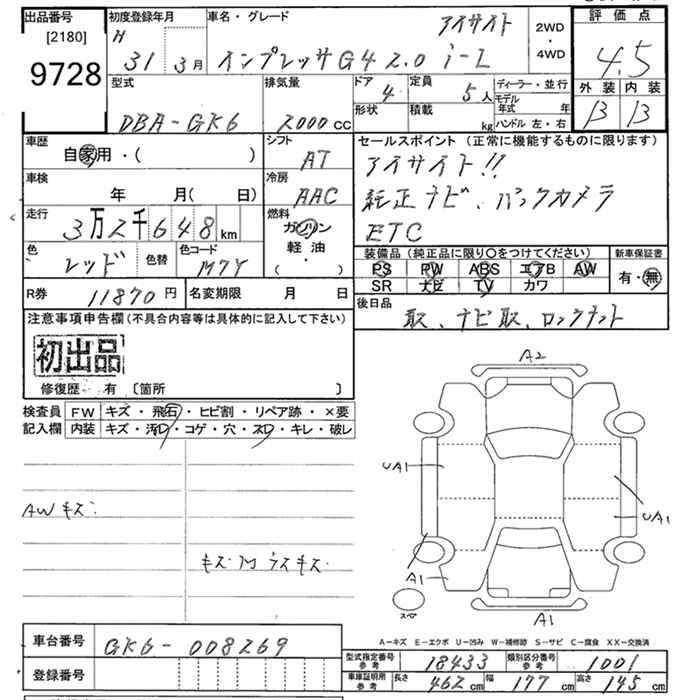 出品番号
[2180]
9728
初度登録年月
H 31 3月
車名・グレード
アイサイト
インプレッサG4 2.0 i-L
2WD
・
4WD
評価点
4.5
外装 内装
B B
型式
DBA-GK6
排気量
2000cc
ドア
4
定員
5人
形状
積載
kg
ディーラー・並行
モデル年式 年
ハンドル 左・右
車歴
自家用・( )
シフト
AT
車検
年 月( 日)
冷房
AAC
走行
3万2千648km
燃料
ガソリン
軽油
( )
色
レッド
色替
色コード
M7Y
R券
11870円
名変期限 月 日
セールスポイント (正常に機能するものに限ります)
アイサイト!!
純正ナビ、バックカメラ
ETC
装備品(純正品に限り○をつけてください)
PS PW ABS エアB AW
SR ナビ TV カワ
新車保証書
有・無
後日品
取、ナビ取、ロックナット
注意事項申告欄(不具合内容等は具体的に記入して下さい)
初出品
修復歴 有 〔箇所 〕
検査員
記入欄
FW キズ・飛石・ヒビ割・リペア跡・×要
内装 キズ・汚レ・コゲ・穴・スレ・キレ・破レ
AWキズ
キズ M ウスキズ
A2
UA1
UA1
A1
A1
スペ
A-キズ E-エクボ U-凹み W-補修跡 S-サビ C-腐食 XX-交換済
車台番号
GK6-008269
登録番号
型式指定番号
参考
18433
類別区分番号
参考
1001
車庫証明用
参考
長さ 462cm
幅 177cm
高さ 145cm